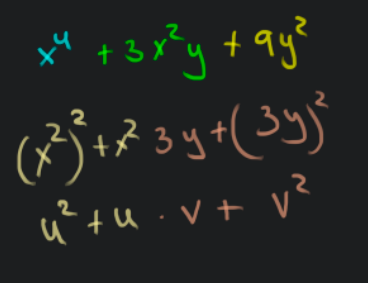 x⁴ + 3x²y + 9y²
(x²)² + x² 3y + (3y)²
u² + u · v + v²